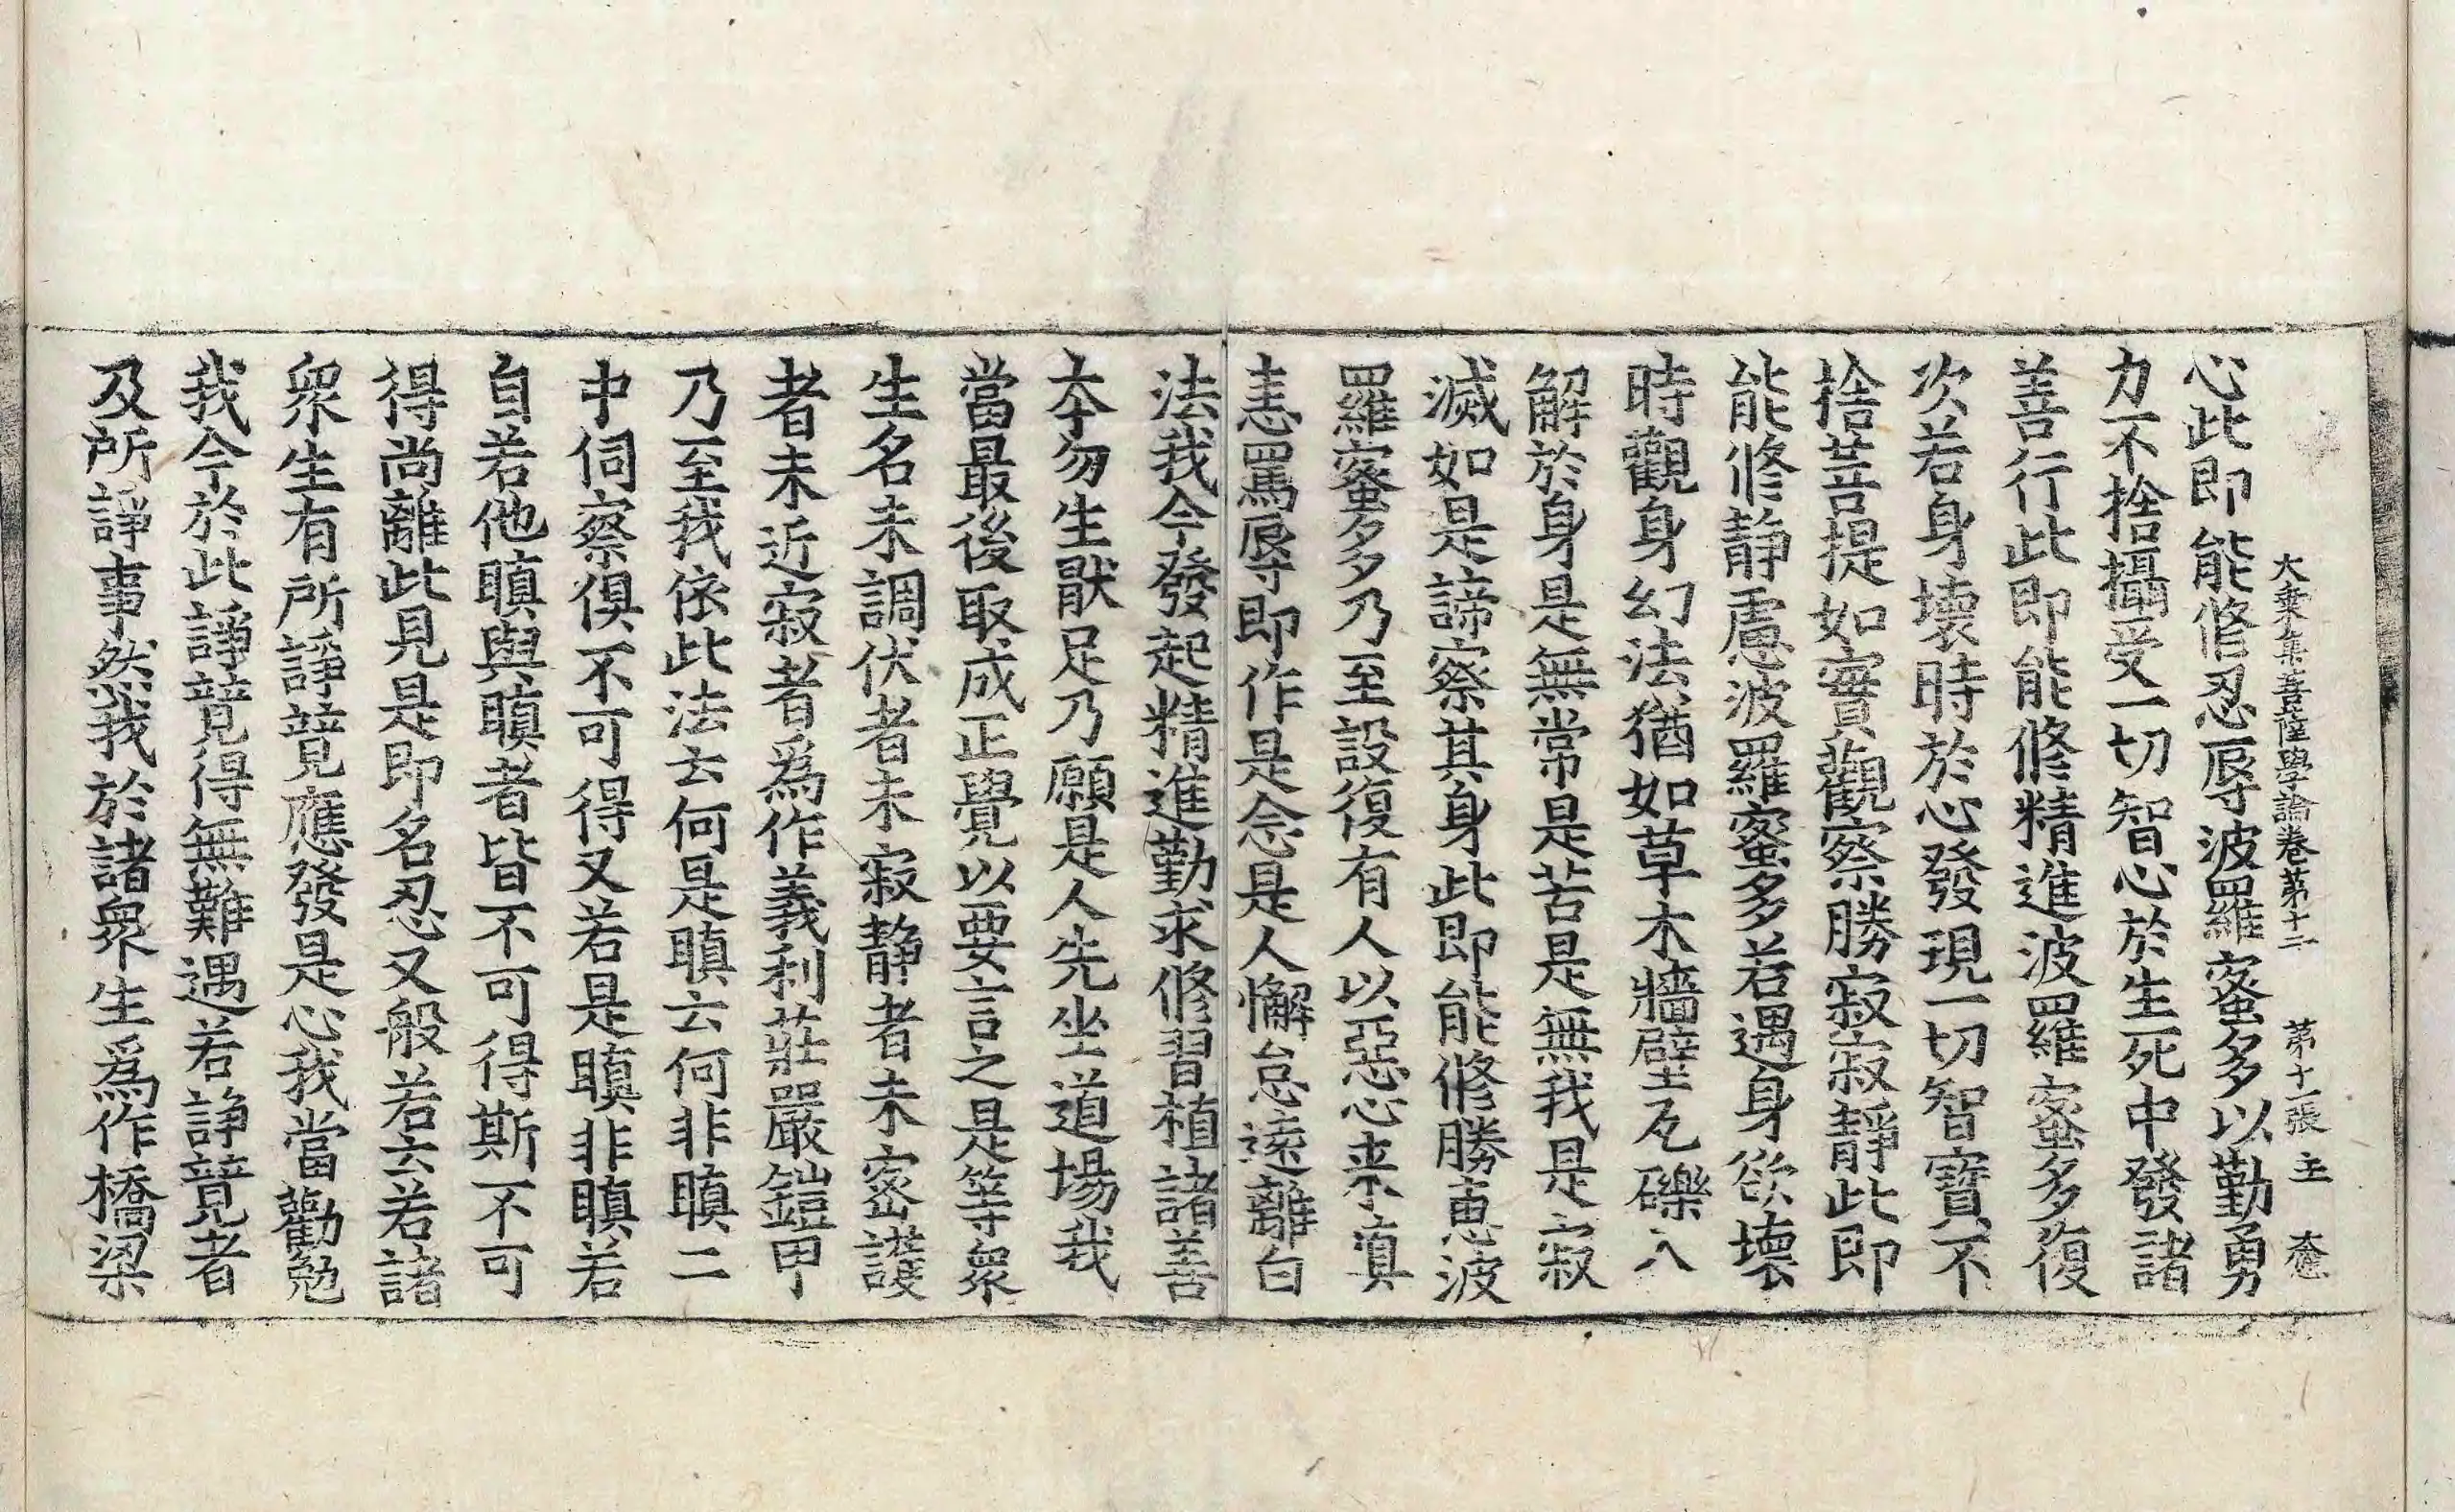 大乗集菩薩學論卷第十二　第十一張　主
心此即能修忍辱波羅蜜多以勤勇
力不捨攝受一切智心於生死中發諸
善行此即能修精進波羅蜜多復
次若身壞時於心發現一切智寶不
捨菩提如實觀察勝寂寂靜此即
能修静慮波羅蜜多若遇身欲壞
時觀身幻法猶如草木牆壁瓦礫入
解於身是無常是苦是無我是寂
滅如是諦察其身此即能修勝惠波
羅蜜多乃至設復有人以惡心来嗔
恚罵辱即作是念是人懈怠遠離白
法我今發起精進勤求修習植諸善
本勿生猒足乃願是人先坐道場我
當最後取成正覺以要言之是等衆
生名未調伏者未寂静者未密護
者未近寂者爲作義利莊嚴鎧甲
乃至我依此法云何是瞋云何非瞋二
中伺察俱不可得又若是瞋非瞋若
自若他瞋與瞋者皆不可得斯不可
得尚離此見是即名忍又般若云若諸
衆生有所諍競應發是心我當勸勉
我今於此諍競得無難遇若諍競者
及所諍事然我於諸衆生爲作橋梁